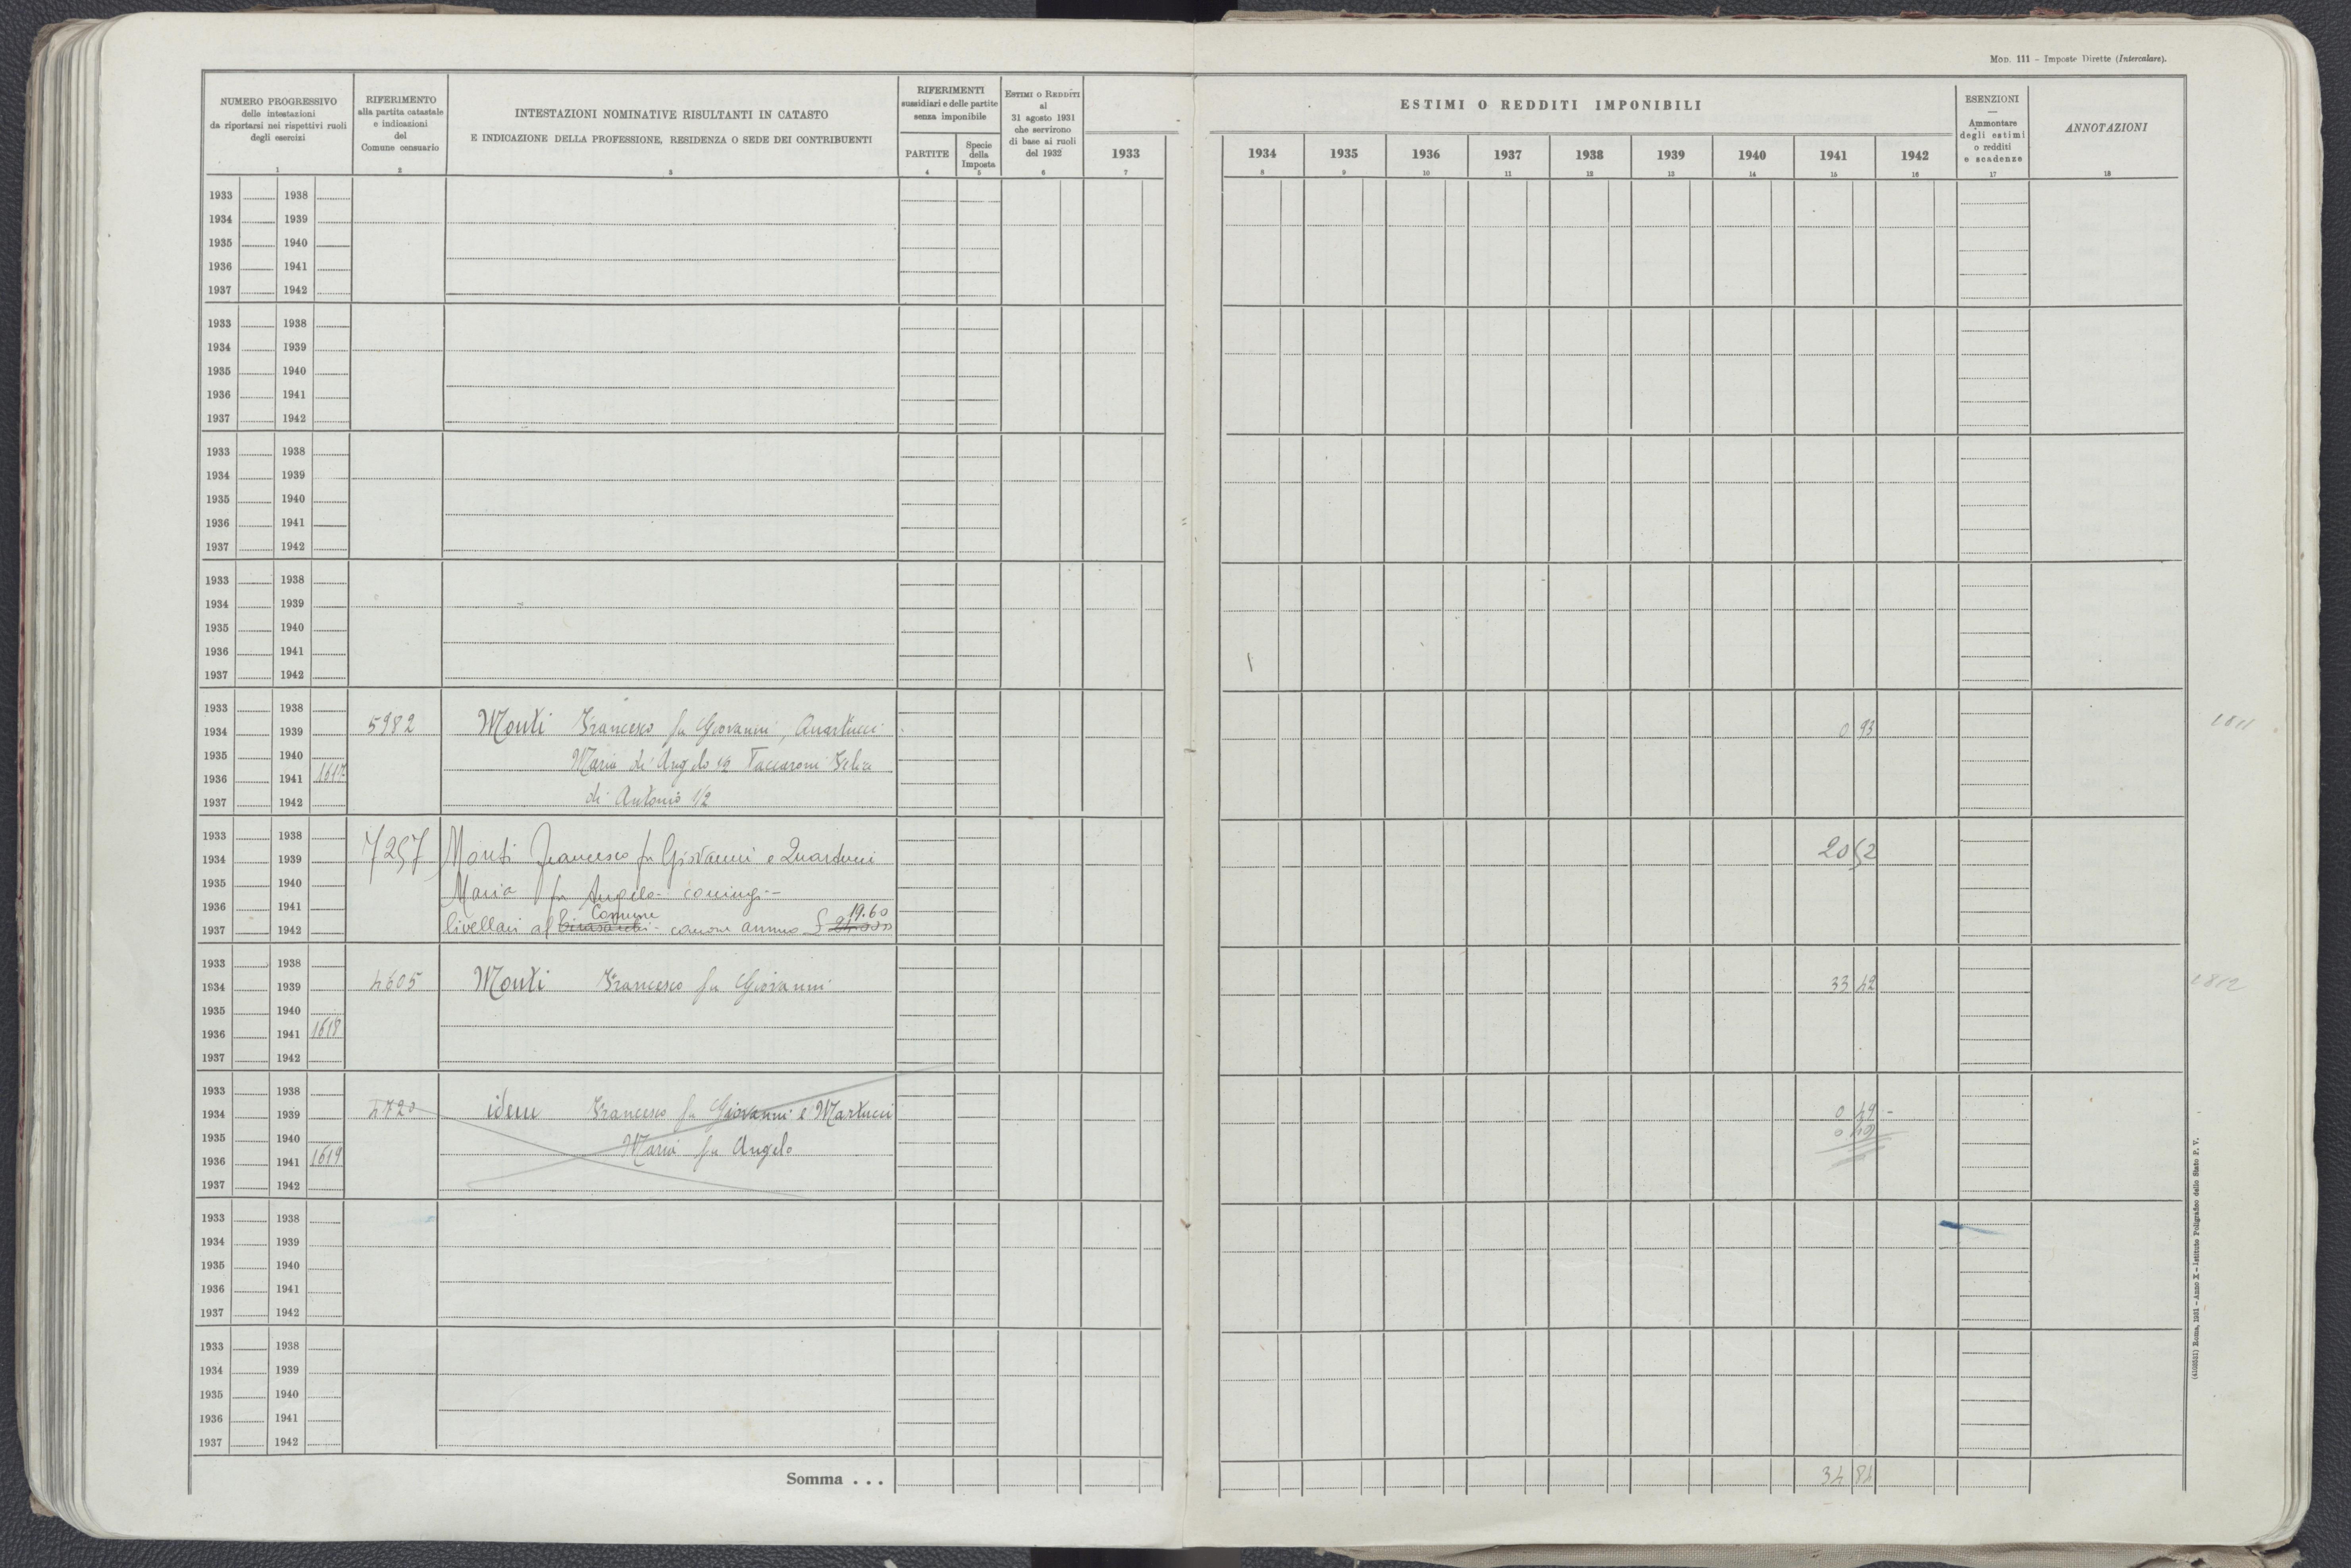 MOD. 111 - Imposte Dirette (Intercalare).
NUMERO PROGRESSIVO
delle intestazioni
da riportarsi nei rispettivi ruoli
degli esercizi
1
RIFERIMENTO
alla partita catastale
e indicazioni
del
Comune censuario
2
INTESTAZIONI NOMINATIVE RISULTANTI IN CATASTO
E INDICAZIONE DELLA PROFESSIONE, RESIDENZA O SEDE DEI CONTRIBUENTI
3
RIFERIMENTI
sussidiari e delle partite
senza imponibile
PARTITE
4
Specie
della
Imposta
5
ESTIMI O REDDITI
al
31 agosto 1931
che servirono
di base ai ruoli
del 1932
6
1933
7
ESTIMI O REDDITI IMPONIBILI
1934 1935 1936 1937 1938 1939 1940 1941 1942
8 9 10 11 12 13 14 15 16
ESENZIONI
—
Ammontare
degli estimi
o redditi
e scadenze
17
ANNOTAZIONI
18
1933 1938
1934 1939
1935 1940
1936 1941
1937 1942
1933 1938
1934 1939
1935 1940
1936 1941
1937 1942
1933 1938
1934 1939
1935 1940
1936 1941
1937 1942
1933 1938
1934 1939
1935 1940
1936 1941
1937 1942
1933 1938
1934 1939 5982 Monti Francesco fu Giovanni, Quartucci 0 93
1935 1940 Maria di Angelo 1/2 Vaccaroni Felice
1936 1941 1617
1937 1942 di Antonio 1/2
1933 1938
1934 1939 7257 Monti Francesco fu Giovanni e Quartucci 20 52
1935 1940 Maria fu Angelo coniugi
1936 1941 Comune 19.60
1937 1942 livellari al canone annuo £
1933 1938
1934 1939 4605 Monti Francesco fu Giovanni 33 42 1812
1935 1940
1936 1941 1618
1937 1942
1933 1938
1934 1939 4720 idem Francesco fu Giovanni e Martucci 0 49
1935 1940 Maria fu Angelo 0 49
1936 1941 1619
1937 1942
1933 1938
1934 1939
1935 1940
1936 1941
1937 1942
1933 1938
1934 1939
1935 1940
1936 1941
1937 1942
Somma . . . 34 84
Roma, 1931 - Anno X - Istituto Poligrafico dello Stato P. V.